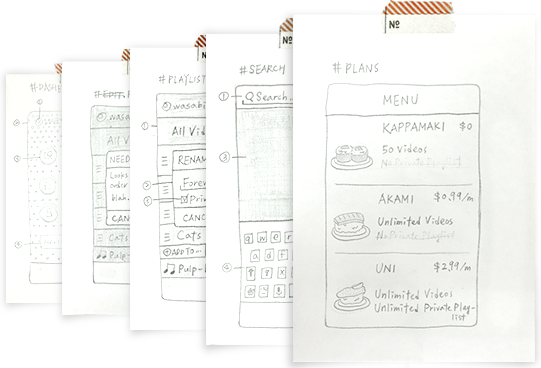 #DASHB
wasa
#EDIT.
wasab
All Vi
NEED
Looks
order
blah.
CAN
Cats
Pulp-
#PLAYLIST
①
②
③
wasabi
All Vid
RENAM
Forev
Priv
CANC
Cats
ADD TO-
Pulp-L
Nº
#SEARCH
①
③
④
Search..
q w e r
a d f
z x
Nº
#PLANS
MENU
KAPPAMAKI $0
50 Videos
No Private Playlist
AKAMI $0.99/m
Unlimited Videos
No Private Playlist
UNI $2.99/m
Unlimited Videos
Unlimited Private Play-
list